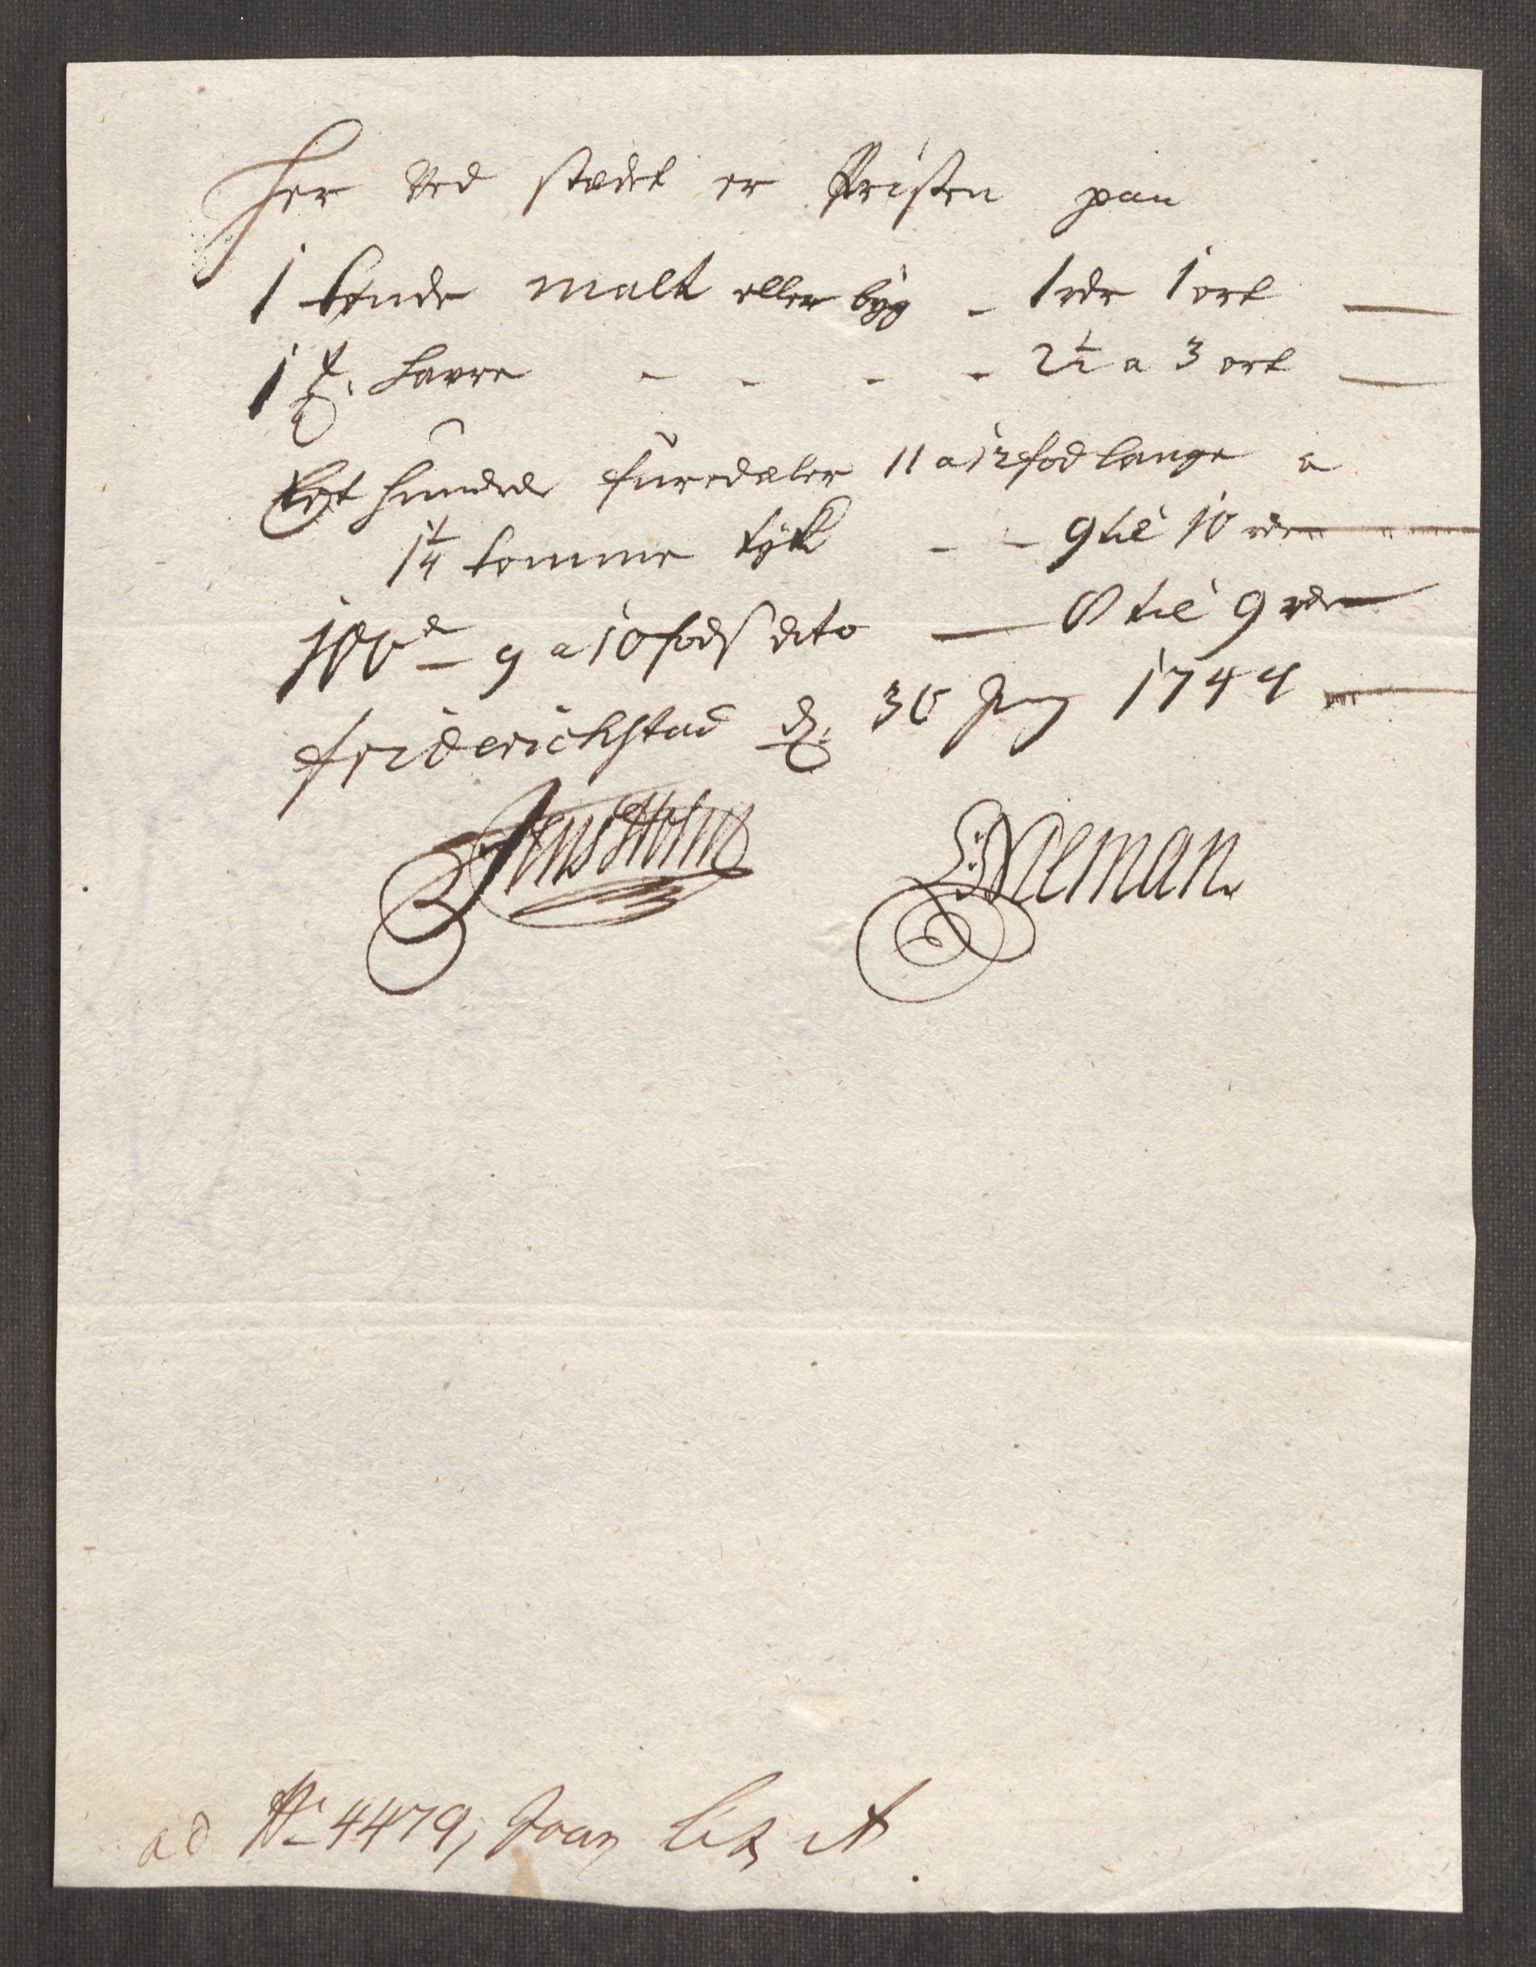 Her Ved stædet er Pristen paa
1 tønde malt eller byg - 1 rdr 1 ort
1 t. havre - - - - 2½ a 3 ort
Et hundrede furedæler 11 a 12 fod lange a
1¼ tomme tyk - - 9 til 10 rdr
100de - 9 a 10 fods dito - 8 til 9 rdr
friderichstad d: 30 1744
Jens Holm
Nieman
ad No 4479, Lit A